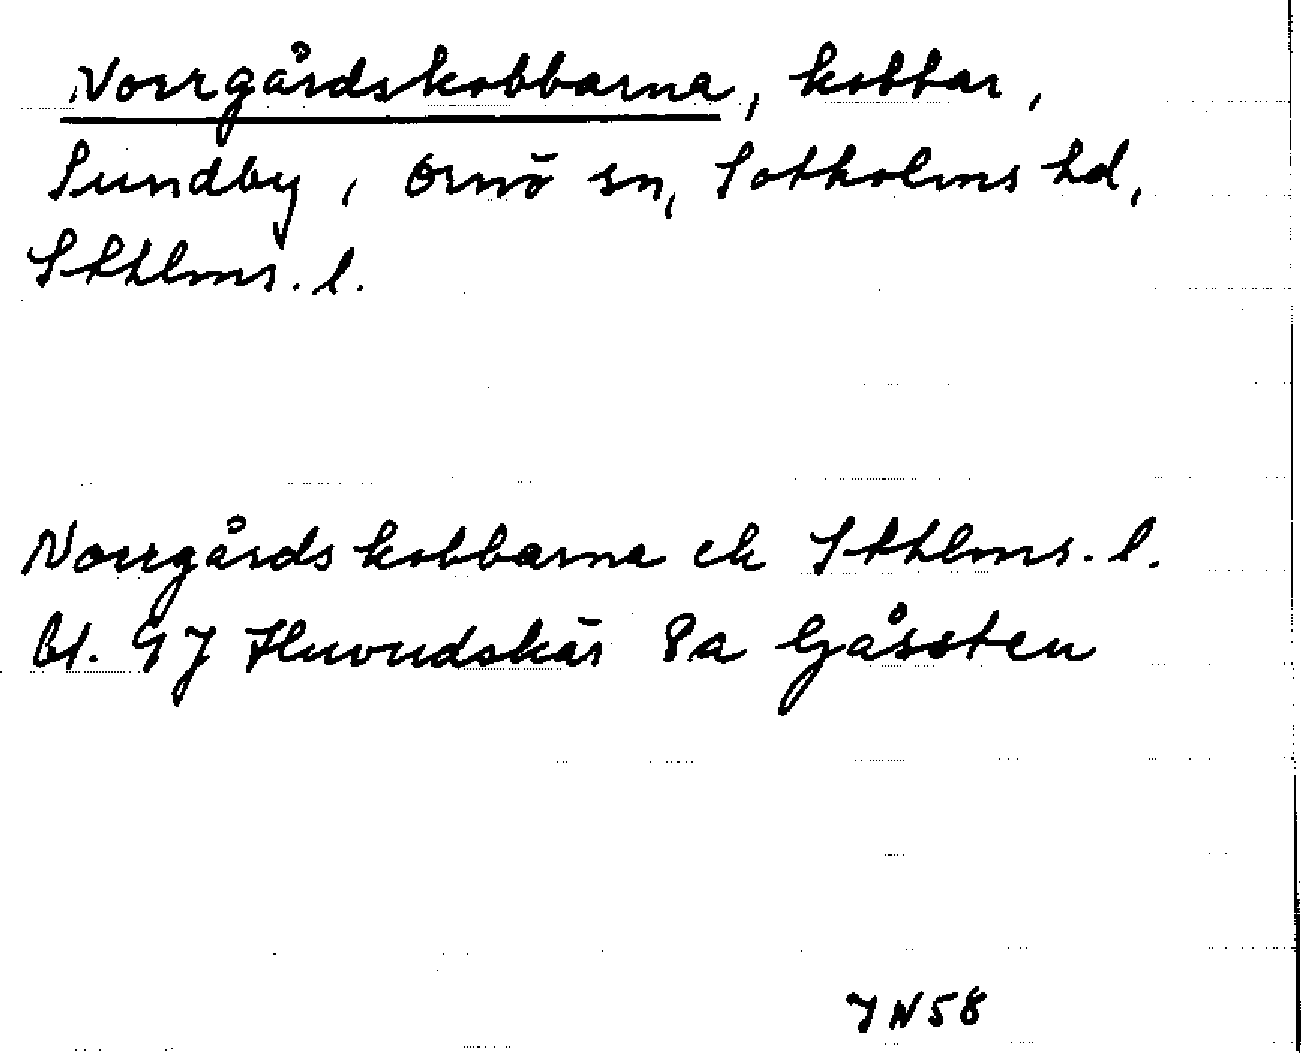 Norrgårdskobbarna, kobbar,
Sundby, Ornö sn, Sotholms hd,
Sthlms. l.
Norrgårdskobbarna ek Sthlms. l.
bl. 97 Huvudskär 8a Gåssten
JN58